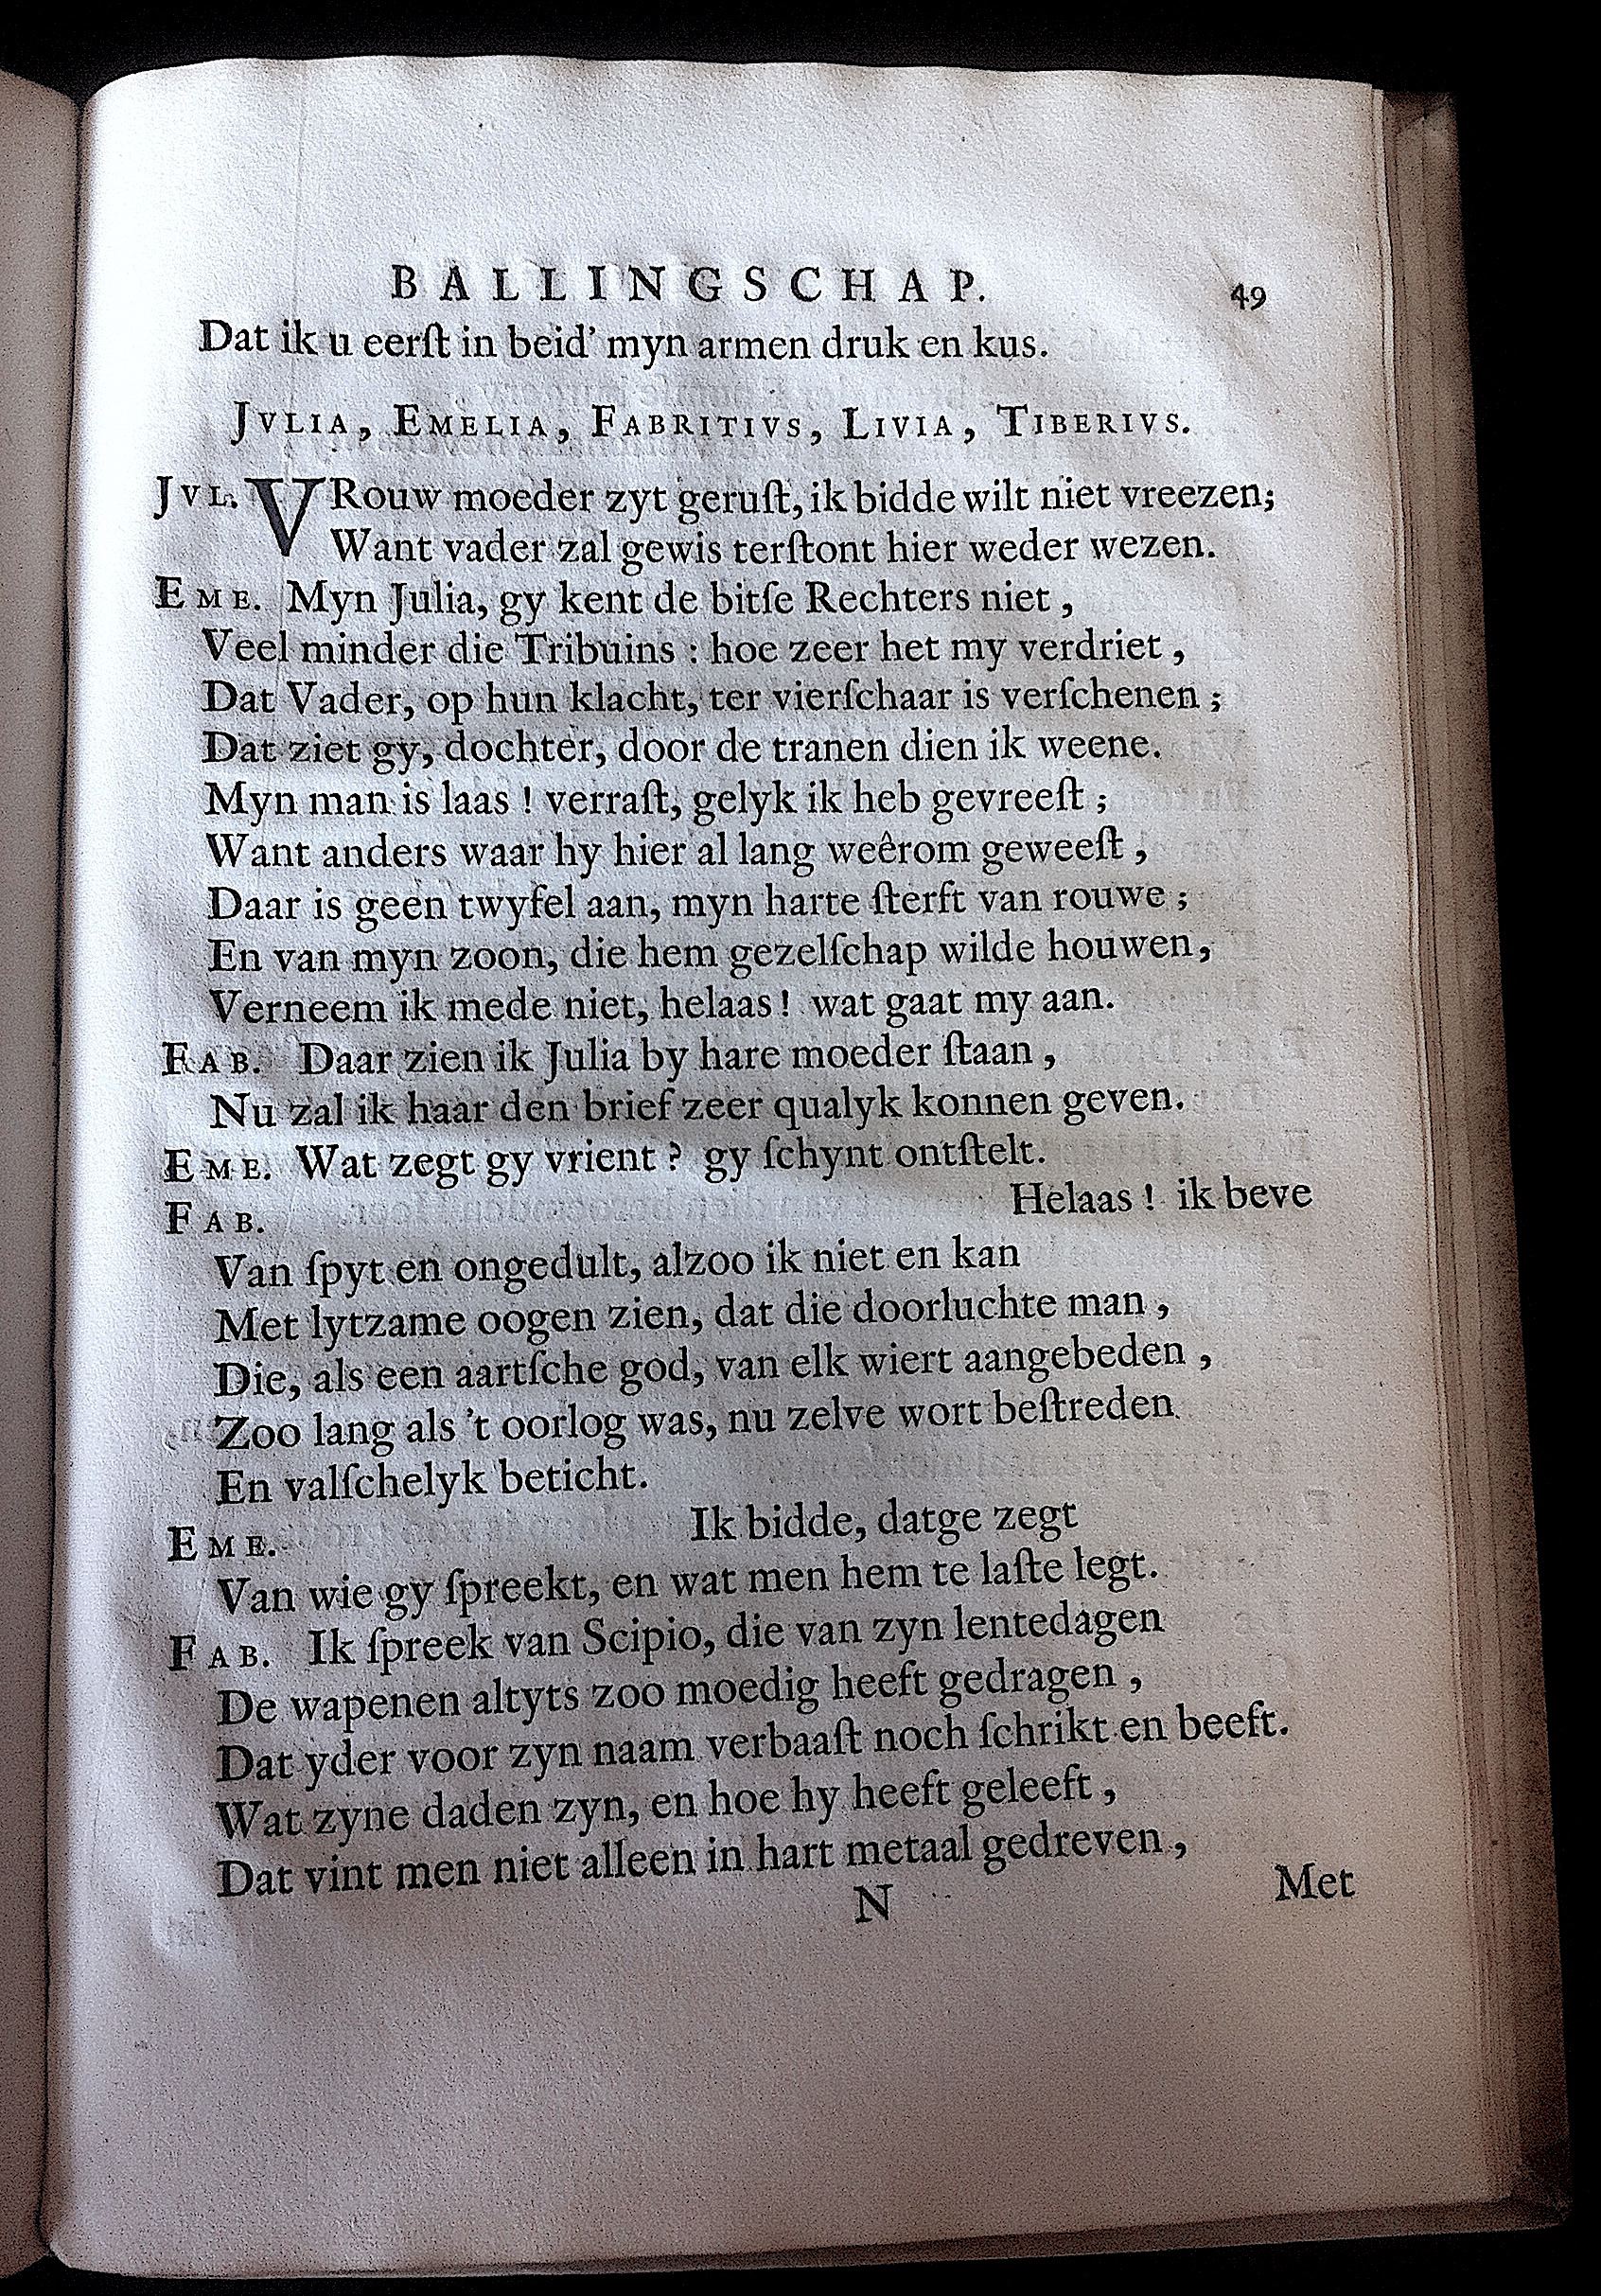 BALLINGSCHAP. 49
Dat ik u eerſt in beid' myn armen druk en kus.
JVLIA, EMELIA, FABRITIVS, LIVIA, TIBERIVS.
JVL. VRouw moeder zyt geruſt, ik bidde wilt niet vreezen;
Want vader zal gewis terſtont hier weder wezen.
EME. Myn Julia, gy kent de bitſe Rechters niet,
Veel minder die Tribuins : hoe zeer het my verdriet,
Dat Vader, op hun klacht, ter vierſchaar is verſchenen;
Dat ziet gy, dochter, door de tranen dien ik weene.
Myn man is laas! verraſt, gelyk ik heb gevreeſt;
Want anders waar hy hier al lang weêrom geweeſt,
Daar is geen twyfel aan, myn harte ſterft van rouwe;
En van myn zoon, die hem gezelſchap wilde houwen,
Verneem ik mede niet, helaas! wat gaat my aan.
FAB. Daar zien ik Julia by hare moeder ſtaan,
Nu zal ik haar den brief zeer qualyk konnen geven.
EME. Wat zegt gy vrient? gy ſchynt ontſtelt.
FAB. Helaas! ik beve
Van ſpyt en ongedult, alzoo ik niet en kan
Met lytzame oogen zien, dat die doorluchte man,
Die, als een aartſche god, van elk wiert aangebeden,
Zoo lang als 't oorlog was, nu zelve wort beſtreden
En valſchelyk beticht.
EME. Ik bidde, datge zegt
Van wie gy ſpreekt, en wat men hem te laſte legt.
FAB. Ik ſpreek van Scipio, die van zyn lentedagen
De wapenen altyts zoo moedig heeft gedragen,
Dat yder voor zyn naam verbaaſt noch ſchrikt en beeft.
Wat zyne daden zyn, en hoe hy heeft geleeft,
Dat vint men niet alleen in hart metaal gedreven,
N Met